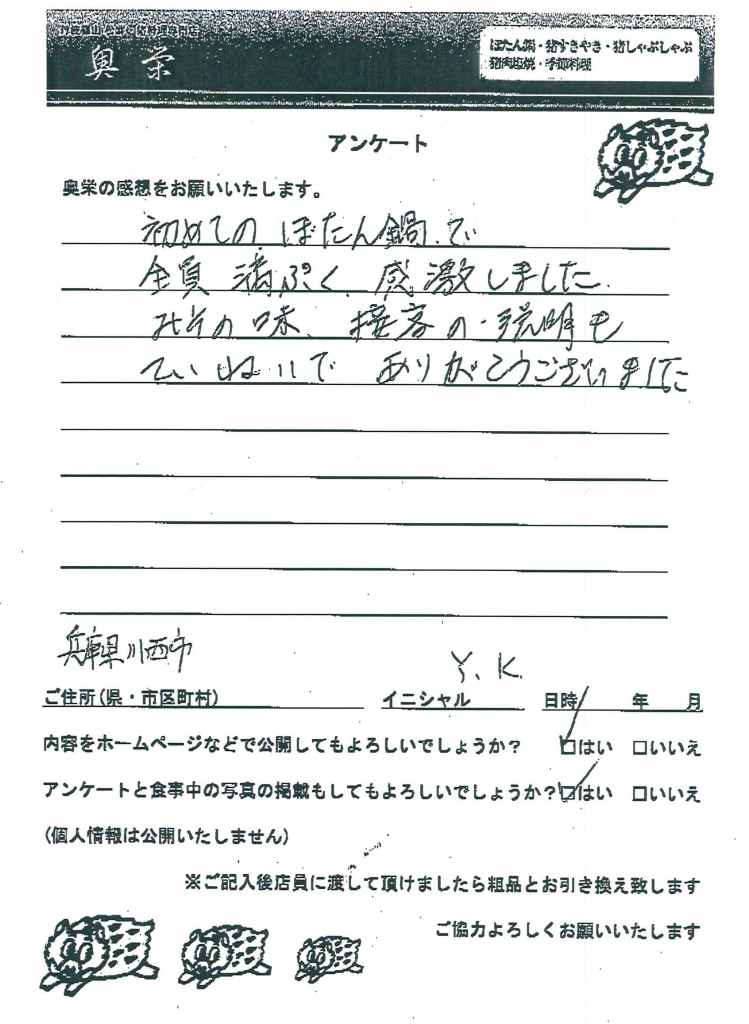 奥栄
ぼたん鍋・猪すきやき・猪しゃぶしゃぶ
猪肉塩焼・季節料理
アンケート
奥栄の感想をお願いいたします。
初めての、ぼたん鍋、で
全員 満ぷく、感激しました
みその味、接客の・説明も
ていねいで ありがとうございました
兵庫県川西市
Y. K.
ご住所(県・市区町村)
イニシャル
日時 年 月
内容をホームページなどで公開してもよろしいでしょうか? □はい □いいえ
アンケートと食事中の写真の掲載もしてもよろしいでしょうか?□はい □いいえ
(個人情報は公開いたしません)
※ご記入後店員に渡して頂けましたら粗品とお引き換え致します
ご協力よろしくお願いいたします